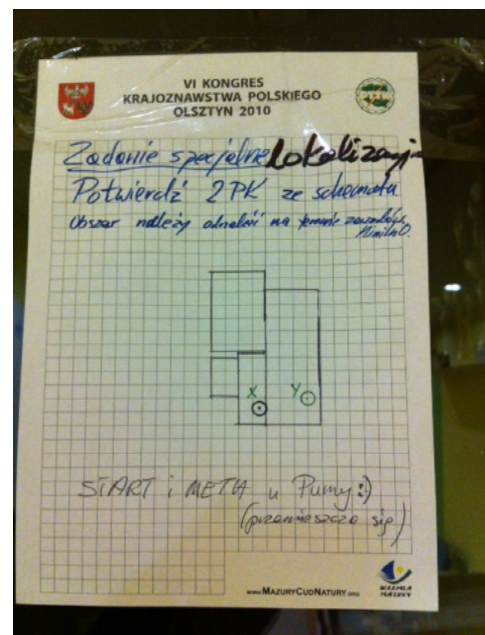 VI KONGRES
KRAJOZNAWSTWA POLSKIEGO
OLSZTYN 2010
Zadanie specjalne Lokalizacja
Potwierdź 2 PK ze schematu
Obszar należy odnaleźć na terenie zawodów
X Y
START i META u Pumy :)
(przemieszcza się)
www.MAZURYCUDNATURY.org
WARMIA
MAZURY